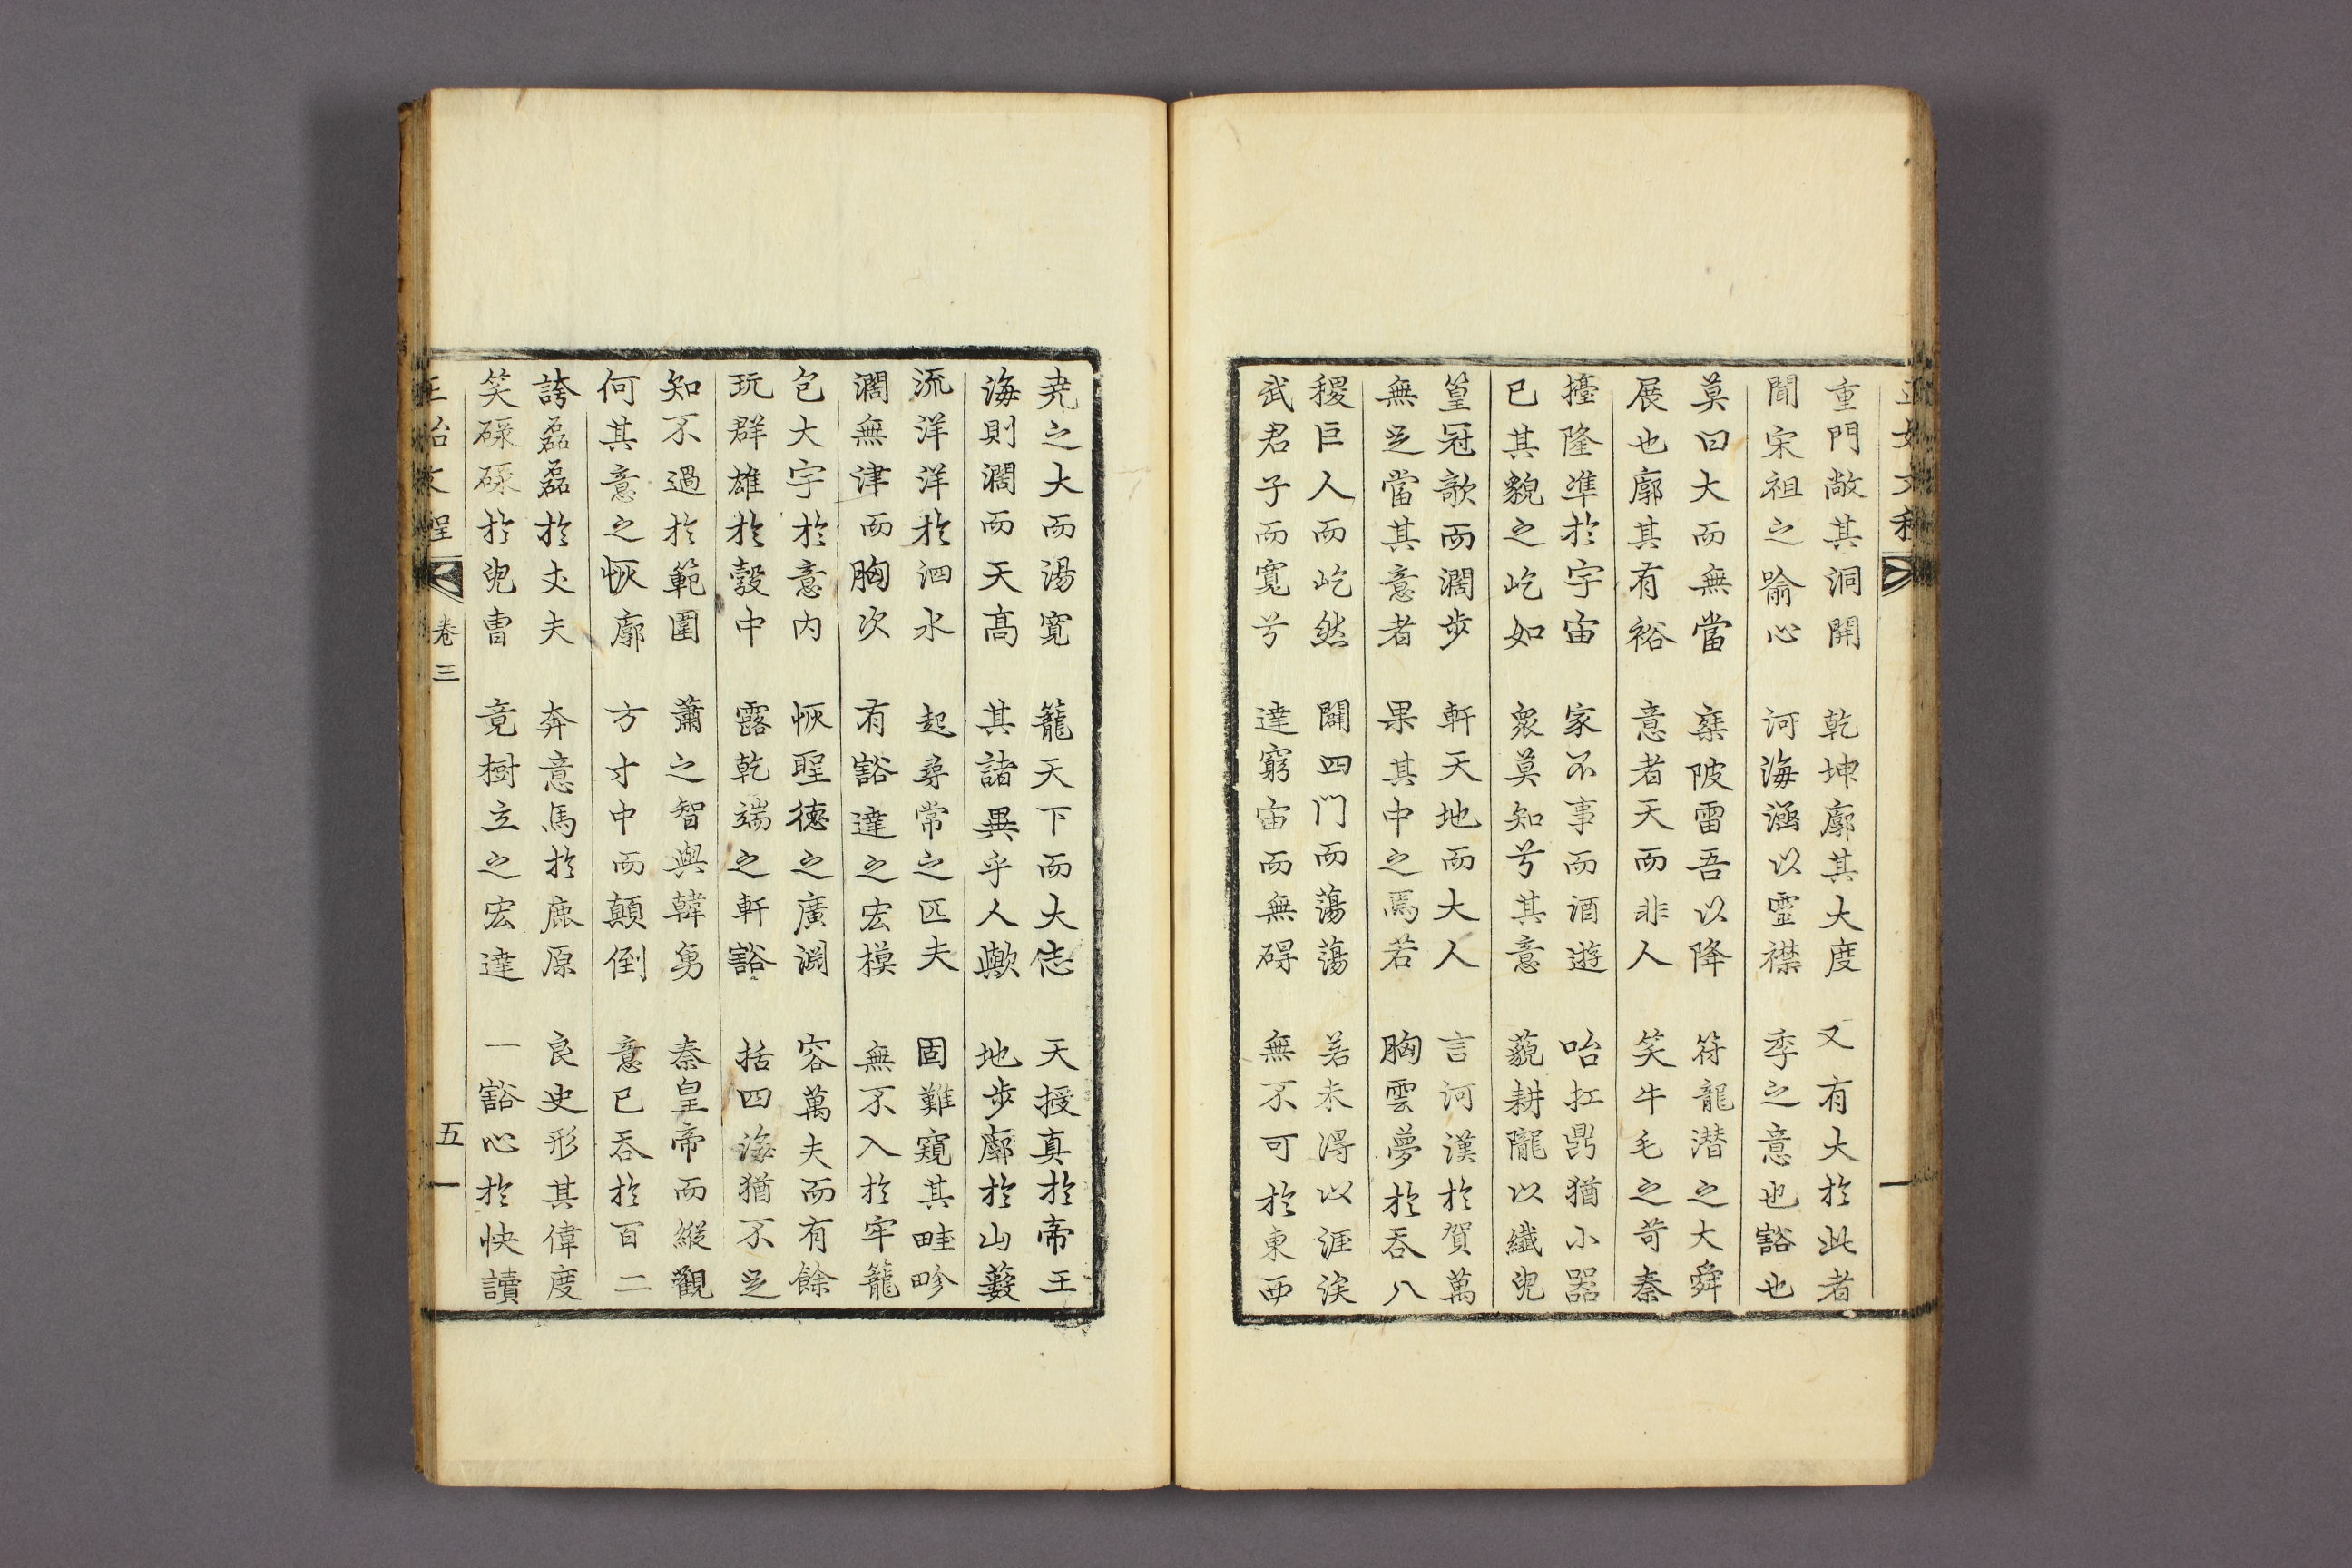 重門敞其洞開 乾坤廓其大度 又有大於此者
間宋祖之喻心 河海涵以靈襟 季之意也豁也
莫曰大而無當 棄陂雷吾以降 符龍潜之大舜
展也廓其有裕 意者天而非人 笑牛毛之苛秦
擡隆準於宇宙 家不事而酒遊 咍扛鼎猶小器
已其貌之屹如 衆莫知兮其意 藐耕隴以纖兒
篁冠歌而濶步 軒天地而大人 言河漢於賀萬
無足當其意者 果其中之焉若 胸雲夢於呑八
稷巨人而屹然 闢四門而蕩蕩 若未得以涯涘
武君子而寬兮 達窮宙而無碍 無不可於東西
尭之大而湯寬 籠天下而大志 天授真於帝王
海則濶而天高 其諸異乎人歟 地步廓於山藪
流洋洋於泗水 起尋常之匹夫 固難窺其畦畛
濶無津而胸次 有豁達之宏模 無不入於牢籠
包大宇於意內 恢聖德之廣淵 容萬夫而有餘
玩群雄於彀中 露乾端之軒豁 括四海猶不足
知不過於範圍 蕭之智與韓勇 秦皇帝而縱觀
何其意之恢廓 方寸中而顛倒 意已呑於百二
誇磊磊於丈夫 奔意馬於鹿原 良史形其偉度
笑碌碌於兒曹 竟樹立之宏達 一豁心於快讀
卷三 五